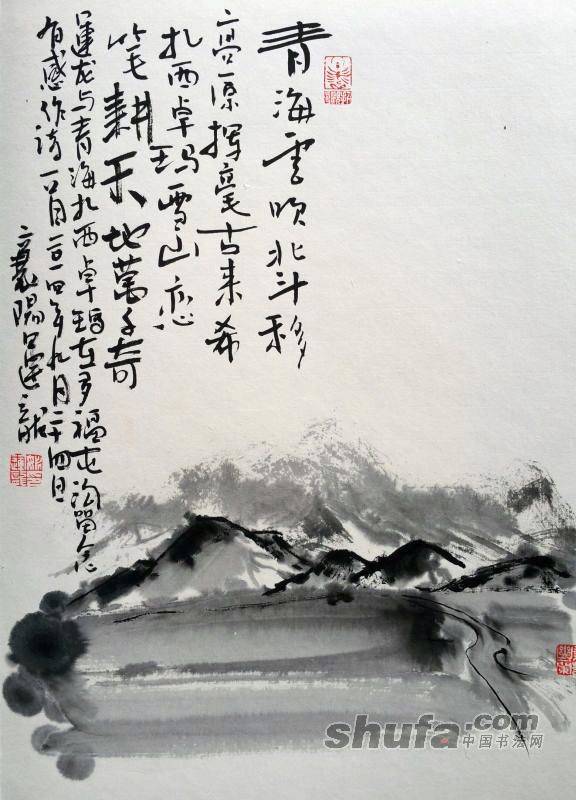 青海雲吹北斗移
高原揮毫古来希
扎西卓玛雪山恋
笔耕天地萬千奇
運龙与青海扎西卓玛在多福屯沟留念
有感作诗一首二〇一四年九月二十四日
襄陽吕運龙
shufa.com
中国书法网